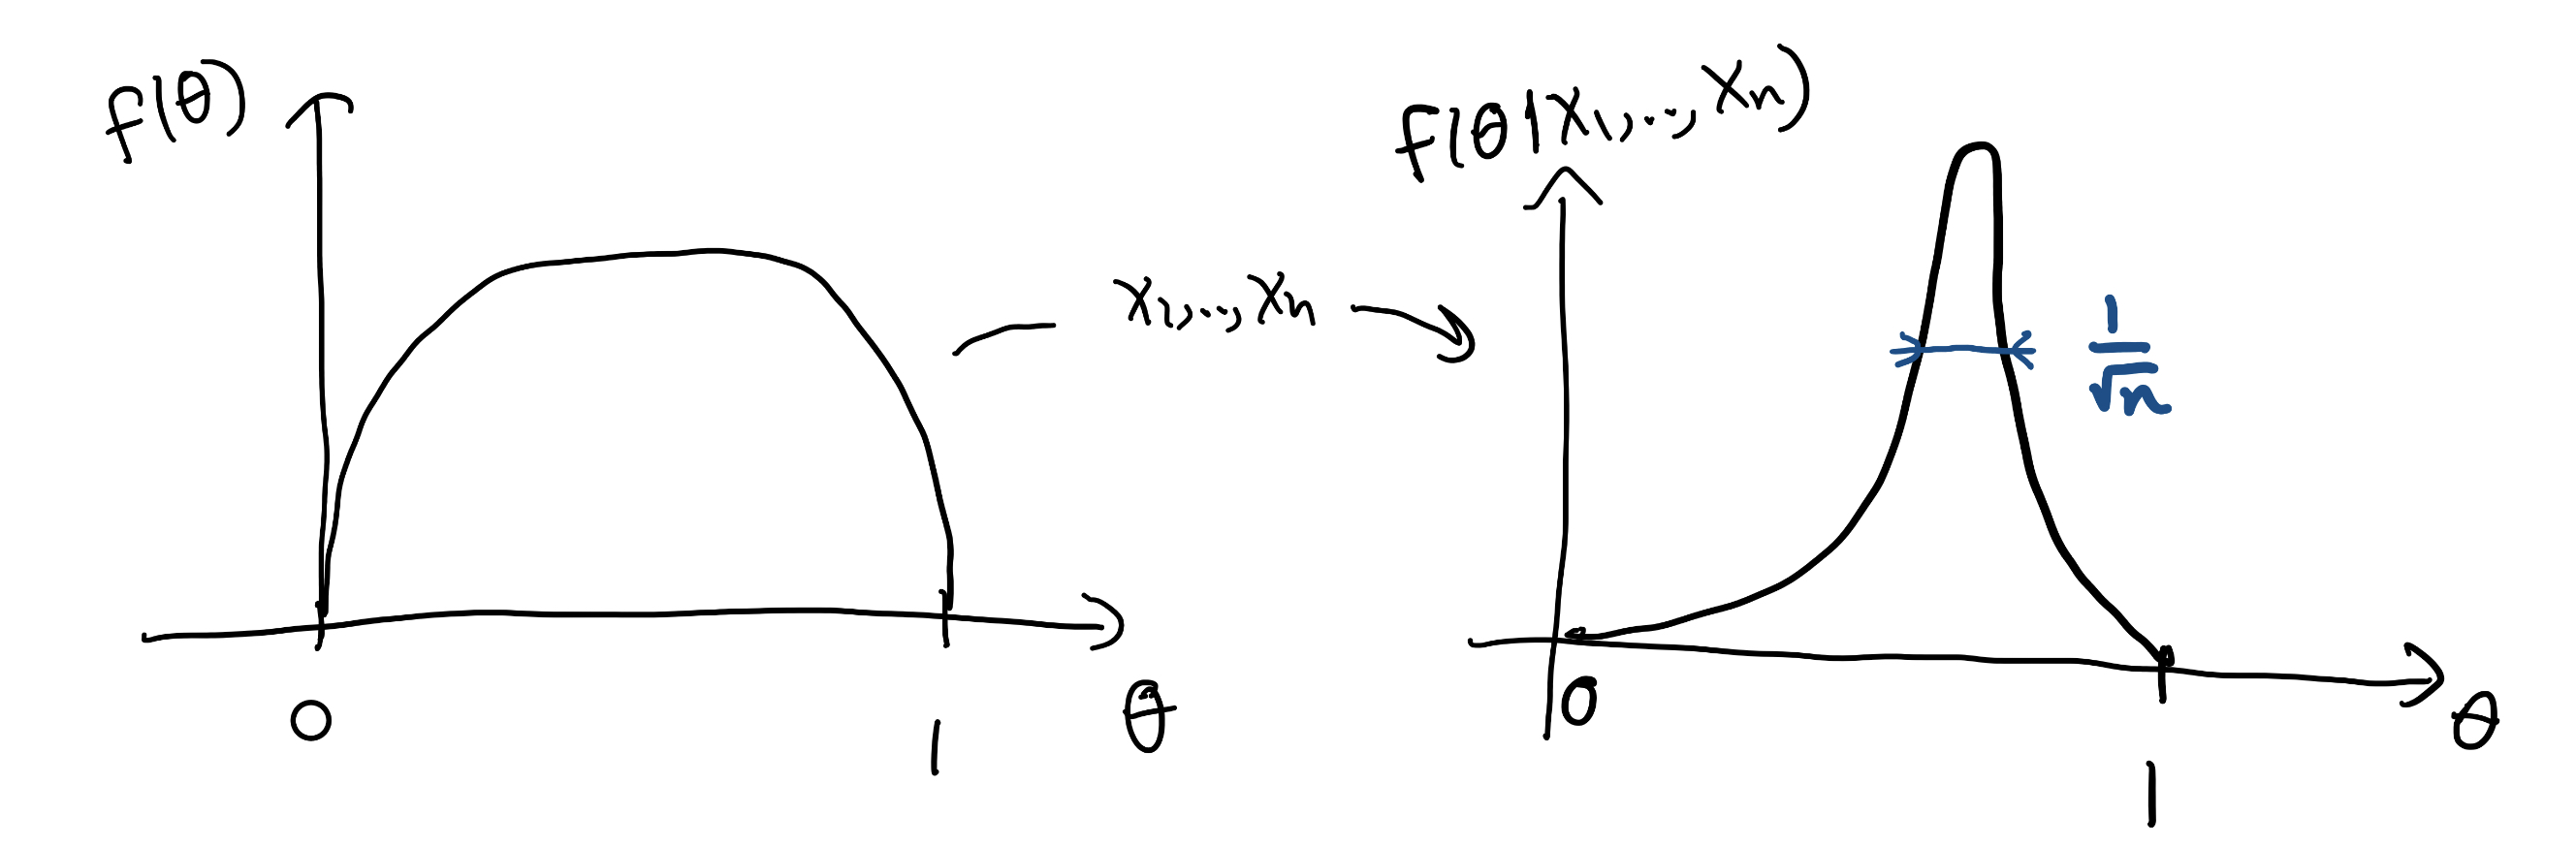 f(θ)
0
1
θ
X1,..,Xn
f(θ|X1,..,Xn)
1/√n
0
1
θ